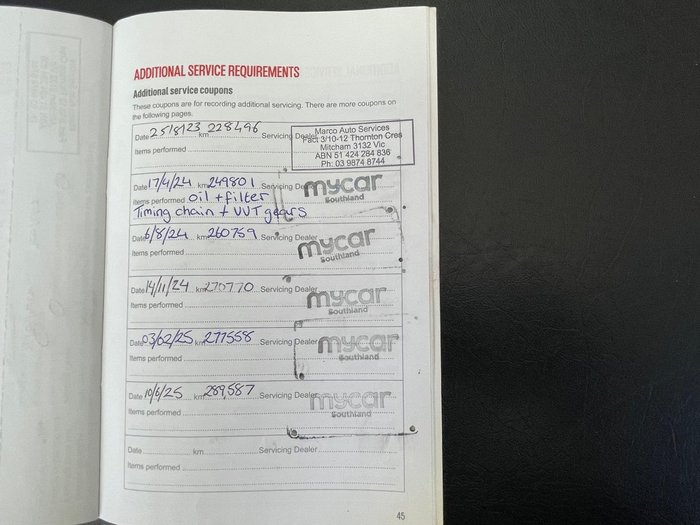 ADDITIONAL SERVICE REQUIREMENTS
Additional service coupons
These coupons are for recording additional servicing. There are more coupons on
the following pages.
Date 25/8/23 km 228496 Servicing Dealer
Items performed
Marco Auto Services
Fact 3/10-12 Thornton Cres
Mitcham 3132 Vic
ABN 51 424 284 836
Ph: 03 9874 8744
Date 17/4/24 km 249801 Servicing Dealer mycar
Southland
Items performed oil + filter
Timing chain + VVT gears
Date 6/8/24 km 260759 Servicing Dealer mycar
Southland
Items performed
Date 14/11/24 km 270770 Servicing Dealer mycar
Southland
Items performed
Date 03/02/25 km 277558 Servicing Dealer mycar
Southland
Items performed
Date 10/6/25 km 289,587 Servicing Dealer mycar
Southland
Items performed
Date km Servicing Dealer
Items performed
45